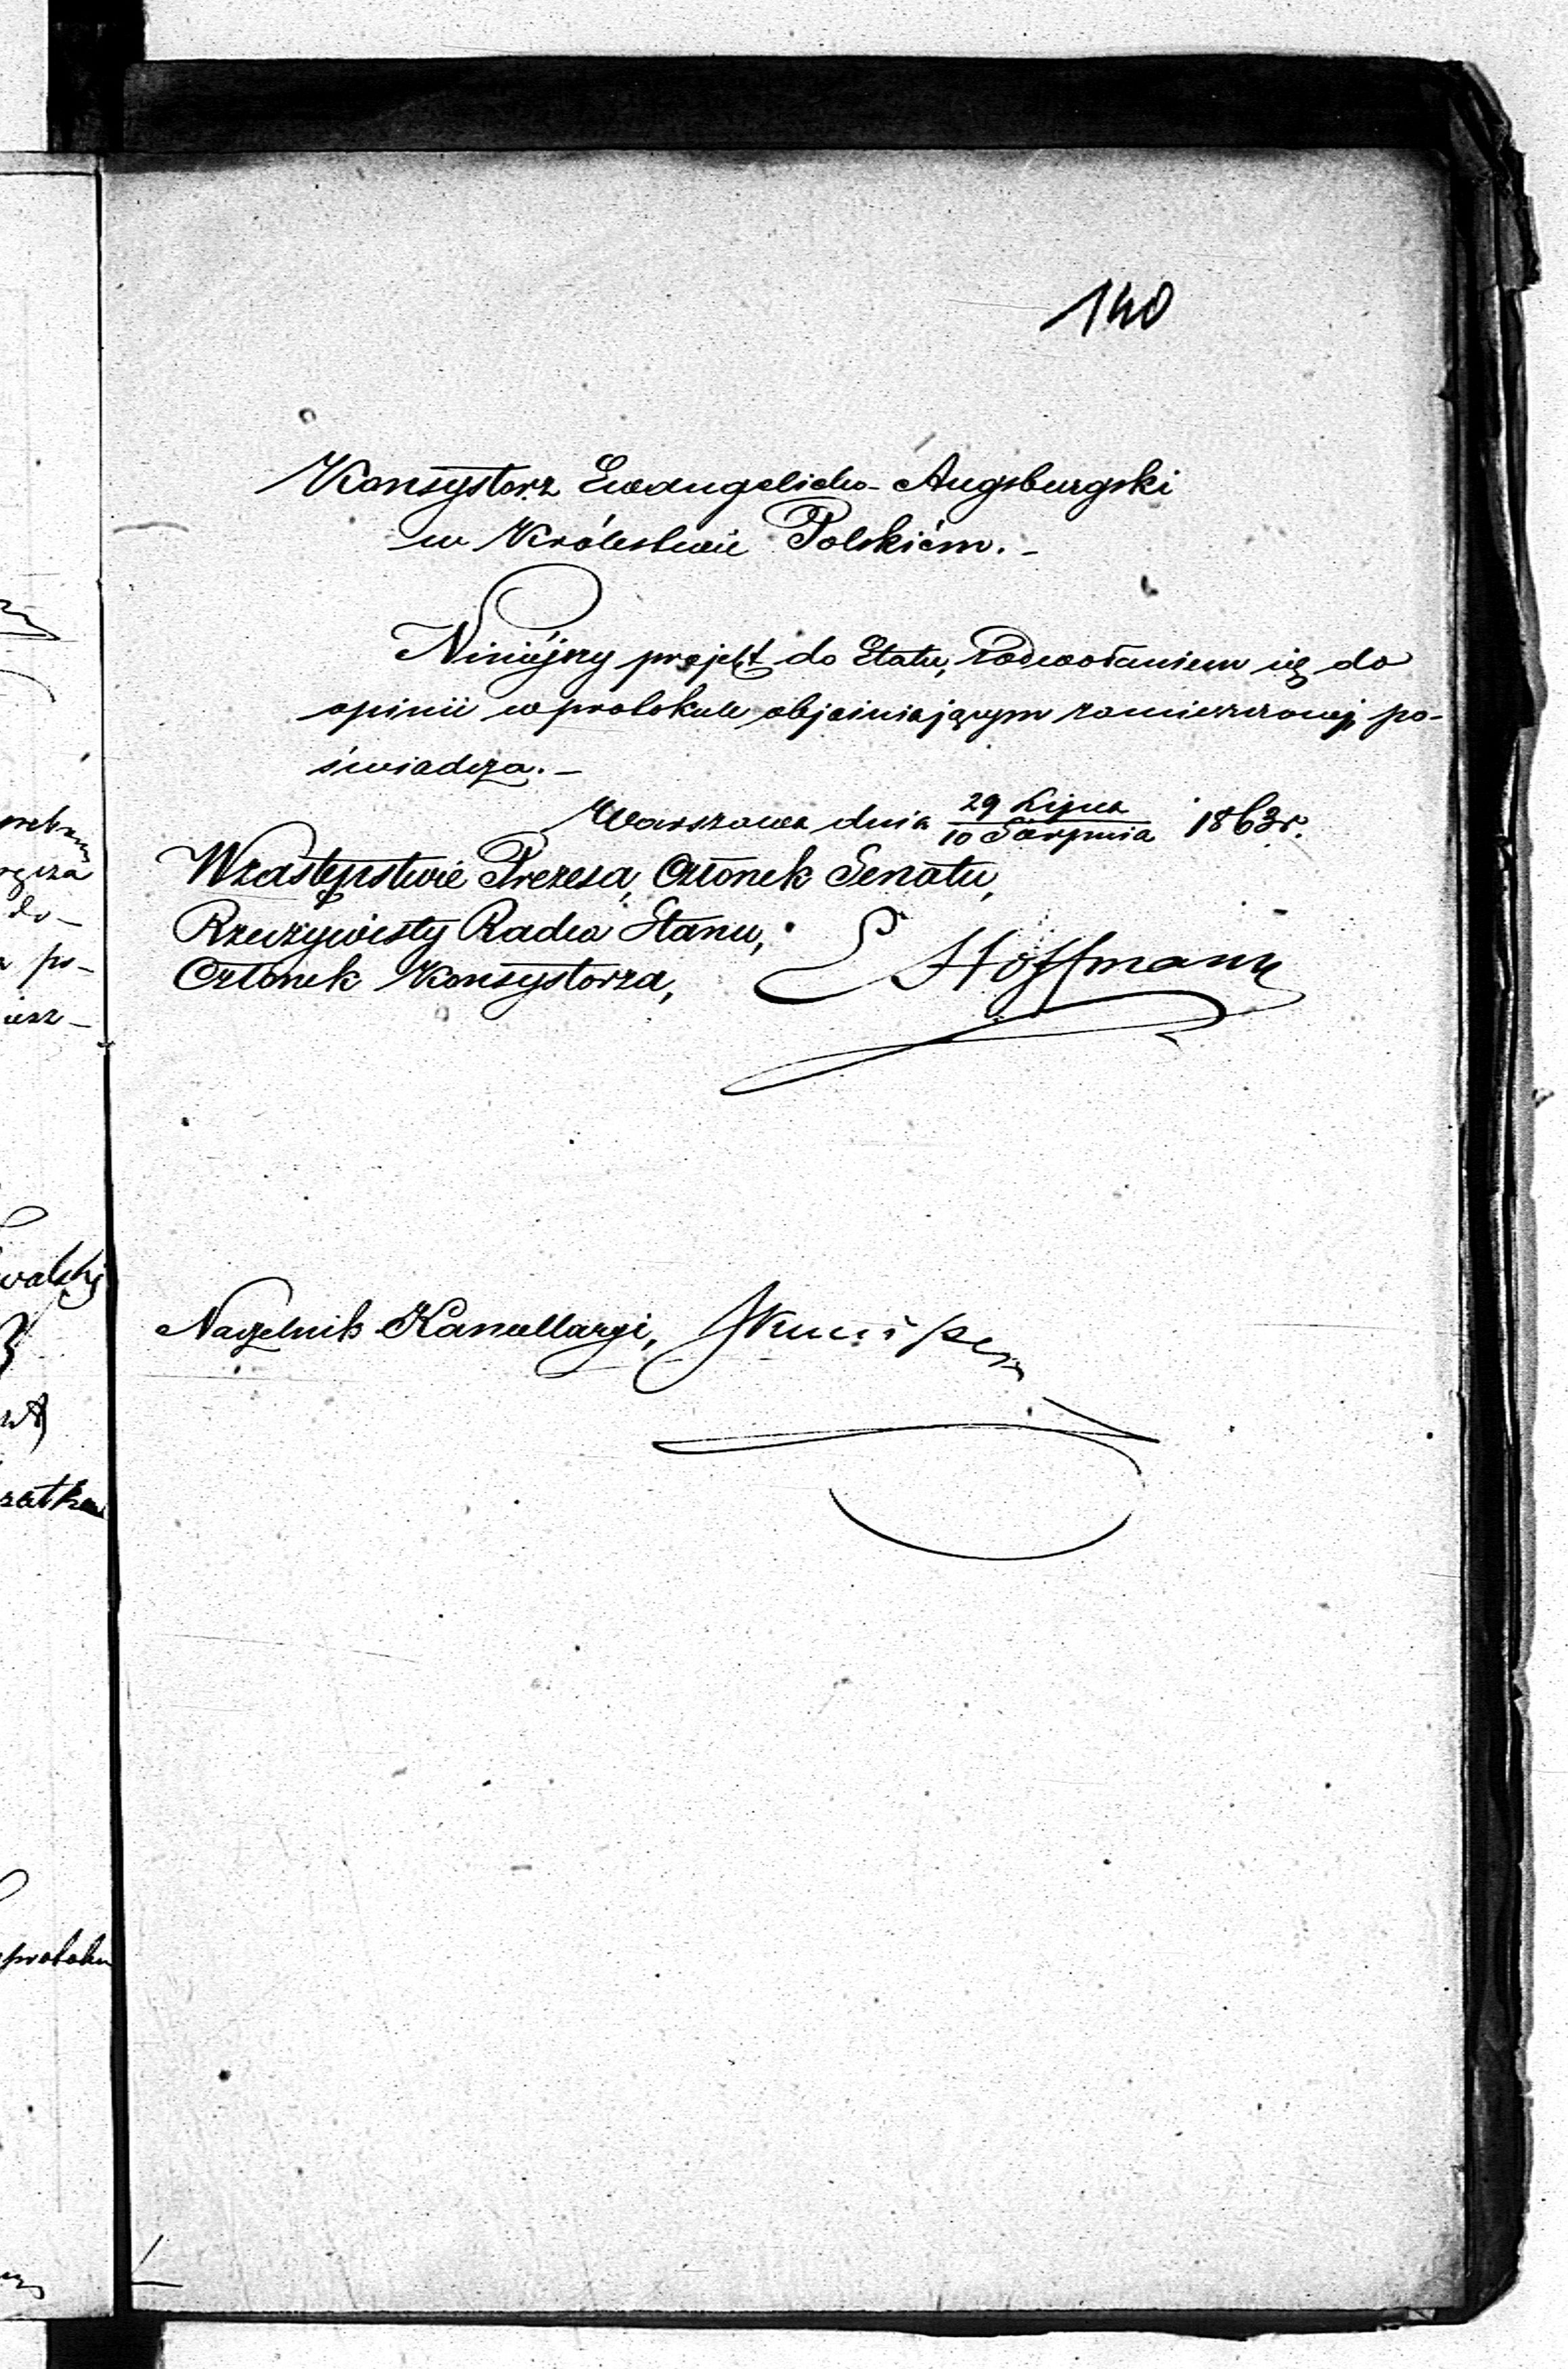 140
Konsystorz Ewangelicko-Augsburgski
w Królestwie Polskiém. -
Niniéjszy projekt do Etatu, z odwołaniem się do
opinii w protokule objaśniającym zamieszczonej, po-
świadcza. -
Warszawa dnia 29 Lipca / 10 Sierpnia 1863 r.
W zastępstwie Prezesa, Członek Senatu,
Rzeczywisty Radca Stanu,
Członek Konsystorza, Hoffmann
Naczelnik Kancellaryi,